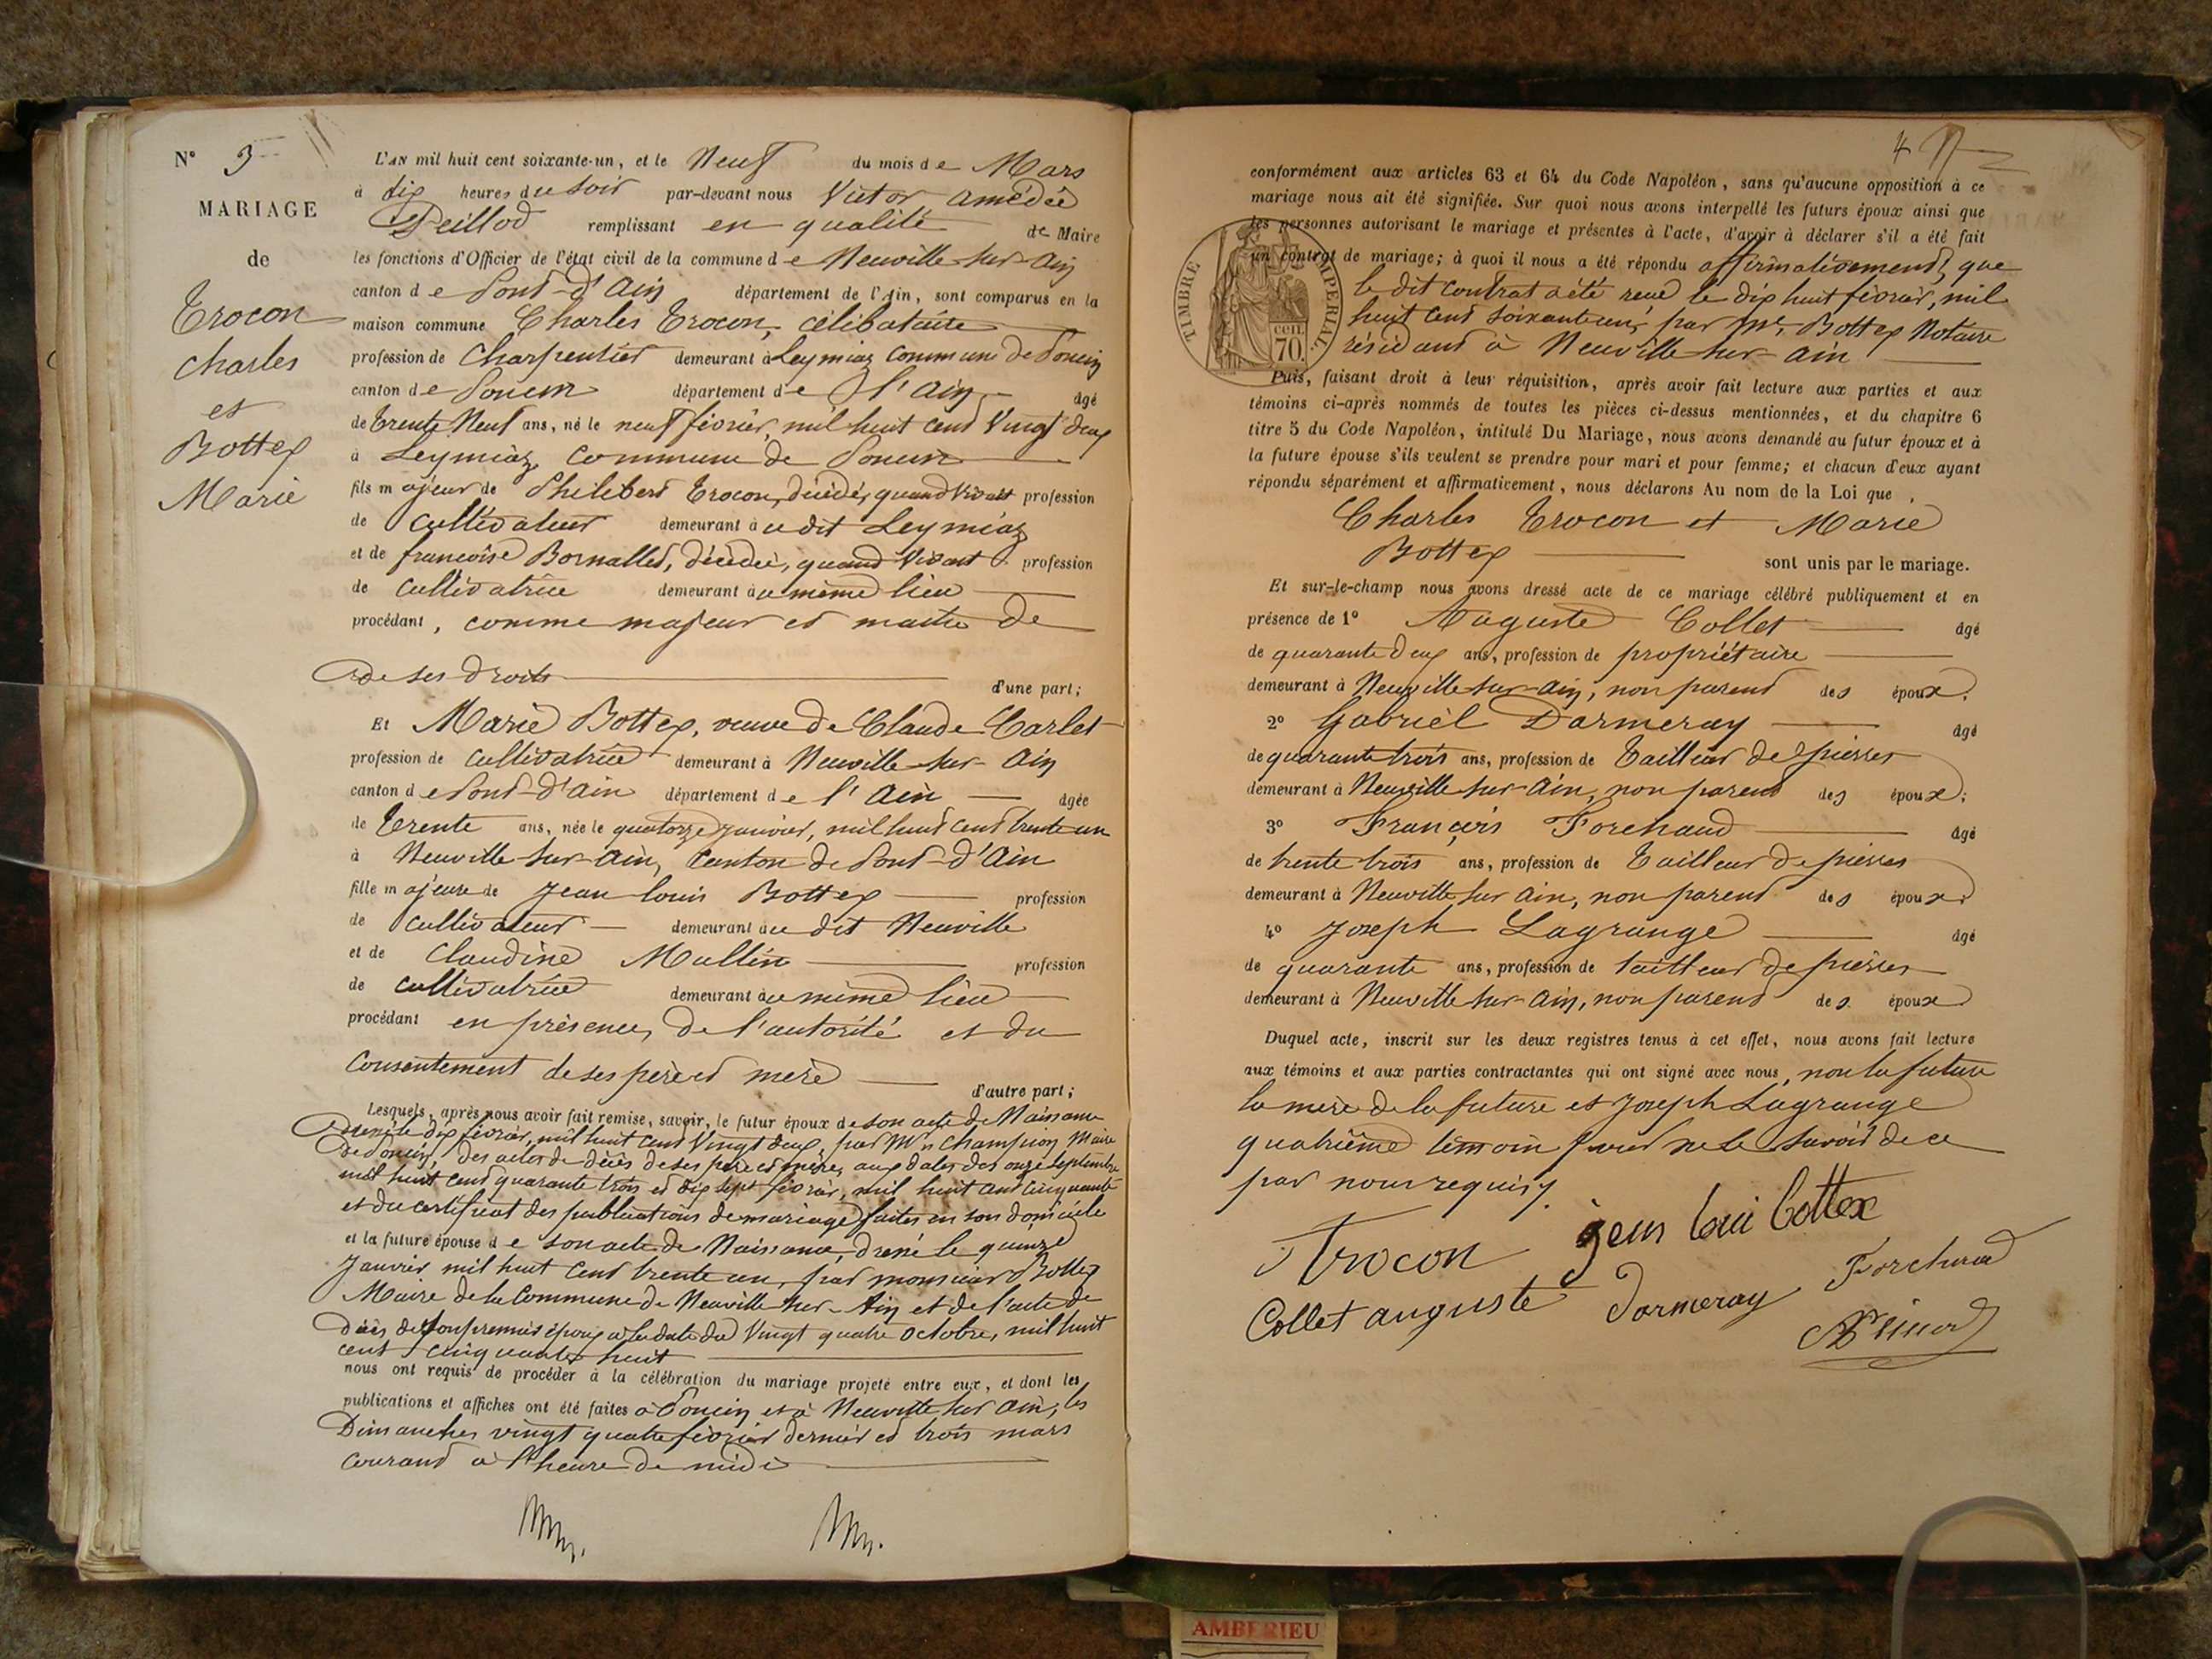 N° 3
MARIAGE
de
Trocon
Charles
et
Bottex
Marie
L'AN mil huit cent soixante-un, et le Neuf du mois de Mars
à dix heures du soir par-devant nous Victor Amédée
remplissant en qualité de Maire
les fonctions d'Officier de l'état civil de la commune de Neuville sur Ain
canton de Pont-d'Ain département de l'Ain, sont comparus en la
maison commune Charles Trocon, célibataire
profession de Charpentier demeurant à Leymiaz commune de Poncin
canton de Poncin département de l'Ain âgé
de trente Neuf ans, né le neuf février, mil huit cent Vingt deux
à Leymiaz commune de Poncin
fils majeur de Philibert Trocon, décédé, quand vivait profession
de cultivateur demeurant au dit Leymiaz
et de françoise décédée, quand vivait profession
de cultivatrice demeurant au même lieu
procédant, comme majeur et maître de
de ses droits d'une part;
Et Marie Bottex, veuve de Claude Carlet
profession de cultivatrice demeurant à Neuville sur Ain
canton de Pont-d'ain département de l'Ain âgée
de trente ans, née le quatorze janvier, mil huit cent trente un
à Neuville sur Ain, canton de Pont-d'Ain
fille majeure de Jean Louis Bottex profession
de cultivateur demeurant au dit Neuville
et de Claudine Mullin profession
de cultivatrice demeurant au même lieu
procédant en présence, de l'autorité et du
consentement de ses père et mère d'autre part;
Lesquels, après nous avoir fait remise, savoir, le futur époux de son acte de Naissance
dressé le dix février, mil huit cent Vingt deux, par Mr Champion Maire
de Poncin, des actes de décès de ses père et mère, aux dates des onze septembre
mil huit cent quarante trois et dix sept février, mil huit cent cinquante
et du certificat des publications de mariage faites en son domicile
et la future épouse de son acte de Naissance, dressé le quinze
Janvier mil huit cent trente un, par monsieur Bottex
Maire de la Commune de Neuville sur Ain et de l'acte de
décès de son premier époux à la date du Vingt quatre octobre, mil huit
cent cinquante huit
nous ont requis de procéder à la célébration du mariage projeté entre eux, et dont les
publications et affiches ont été faites à Poncin et à Neuville sur Ain, les
Dimanches vingt quatre février dernier et trois mars
courant à l'heure de midi
4
conformément aux articles 63 et 64 du Code Napoléon, sans qu'aucune opposition à ce
mariage nous ait été signifiée. Sur quoi nous avons interpellé les futurs époux ainsi que
les personnes autorisant le mariage et présentes à l'acte, d'avoir à déclarer s'il a été fait
un contrat de mariage; à quoi il nous a été répondu affirmativement, que
le dit contrat a été reçu le dix huit février, mil
huit cent soixante un, par Me Bottex Notaire
résidant à Neuville sur Ain
TIMBRE IMPÉRIAL
CEN.
70.
Puis, faisant droit à leur réquisition, après avoir fait lecture aux parties et aux
témoins ci-après nommés de toutes les pièces ci-dessus mentionnées, et du chapitre 6
titre 5 du Code Napoléon, intitulé Du Mariage, nous avons demandé au futur époux et à
la future épouse s'ils veulent se prendre pour mari et pour femme; et chacun d'eux ayant
répondu séparément et affirmativement, nous déclarons Au nom de la Loi que,
Charles Trocon et Marie
Bottex sont unis par le mariage.
Et sur-le-champ nous avons dressé acte de ce mariage célébré publiquement et en
présence de 1° Auguste Collet âgé
de quarante deux ans, profession de propriétaire
demeurant à Neuville sur Ain, non parent des époux;
2° Gabriel Darmeray âgé
de quarante trois ans, profession de Tailleur de pierres
demeurant à Neuville sur Ain, non parent des époux;
3° François Forchaud âgé
de trente trois ans, profession de Tailleur de pierres
demeurant à Neuville sur Ain, non parent des époux
4° Joseph Lagrange âgé
de quarante ans, profession de tailleur de pierres
demeurant à Neuville sur Ain, non parent des époux
Duquel acte, inscrit sur les deux registres tenus à cet effet, nous avons fait lecture
aux témoins et aux parties contractantes qui ont signé avec nous, non la future
la mère de la future et Joseph Lagrange
quatrième témoin pour ne le savoir de ce
par nous requis.
Trocon
jean loui bottex
Collet auguste
Darmeray
AMBERIEU